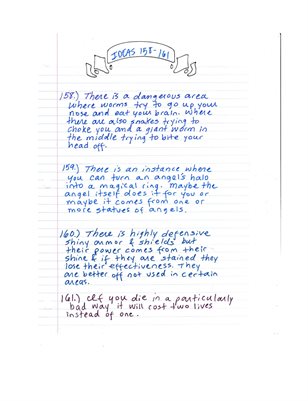 IDEAS 158-161
158.) There is a dangerous area
where worms try to go up your
nose and eat your brain. Where
there are also snakes trying to
choke you and a giant worm in
the middle trying to bite your
head off.
159.) There is an instance where
you can turn an angel's halo
into a magical ring. Maybe the
angel itself does it for you or
maybe it comes from one or
more statues of angels.
160.) There is highly defensive
shiny armor & shields but
their power comes from their
shine & if they are stained they
lose their effectiveness. They
are better off not used in certain
areas.
161.) If you die in a particularly
bad way it will cost two lives
instead of one.